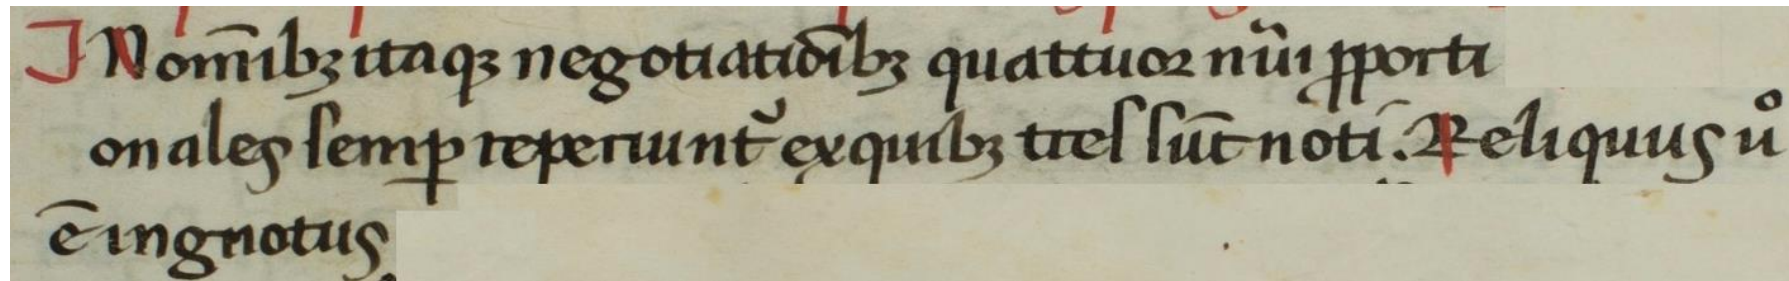 IN om̅ibꝫ itaqꝫ negotiatio̅ibꝫ quattuoꝛ nu̅i ꝓporti
onales semꝑ reperiunt᷑ ex quibꝫ tres su̅t noti. Reliquus uͦ
e̅ ingnotus